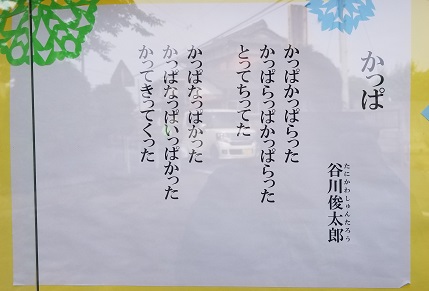 かっぱ
谷川俊太郎
たにかわしゅんたろう
かっぱかっぱらった
かっぱらっぱかっぱらった
とってちってた
かっぱなっぱかった
かっぱなっぱいっぱかった
かってきってくった